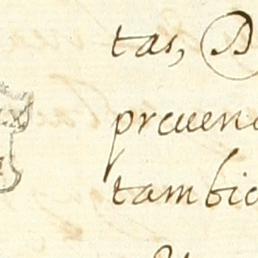 tas, D
preuen
tambic